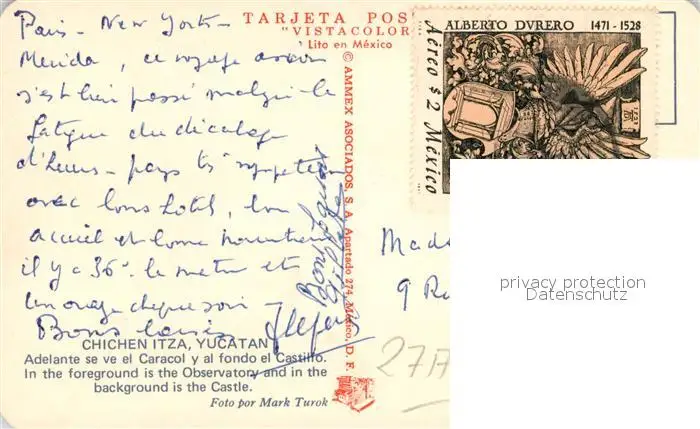 TARJETA POS
"VISTACOLOR
Lito en México
Paris - New York -
Merida, ce voyage avion
s'est bien passé malgré la
fatigue du décalage
d'heures - pays très sympathique
avec bons hotels, bon
accueil et bonne nourriture
il y a 36° le matin et
un orage chaque soir
Bons baisers
CHICHEN ITZA, YUCATAN
Adelante se ve el Caracol y al fondo el Castillo.
In the foreground is the Observatory and in the
background is the Castle.
Foto por Mark Turok
© AMMEX ASOCIADOS, S. A. Apartado 274, México, D. F.
ALBERTO DVRERO 1471-1528
Aéreo $2 México
Mad
9 Ru
27A
privacy protection
Datenschutz